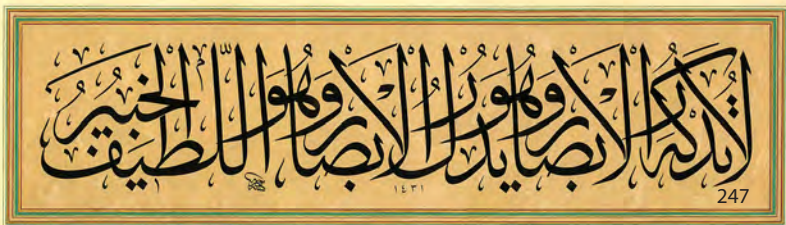 لَا تُدْرِكُهُ الْأَبْصَارُ وَهُوَ يُدْرِكُ الْأَبْصَارَ وَهُوَ اللَّطِيفُ الْخَبِيرُ
١٤٣١
247